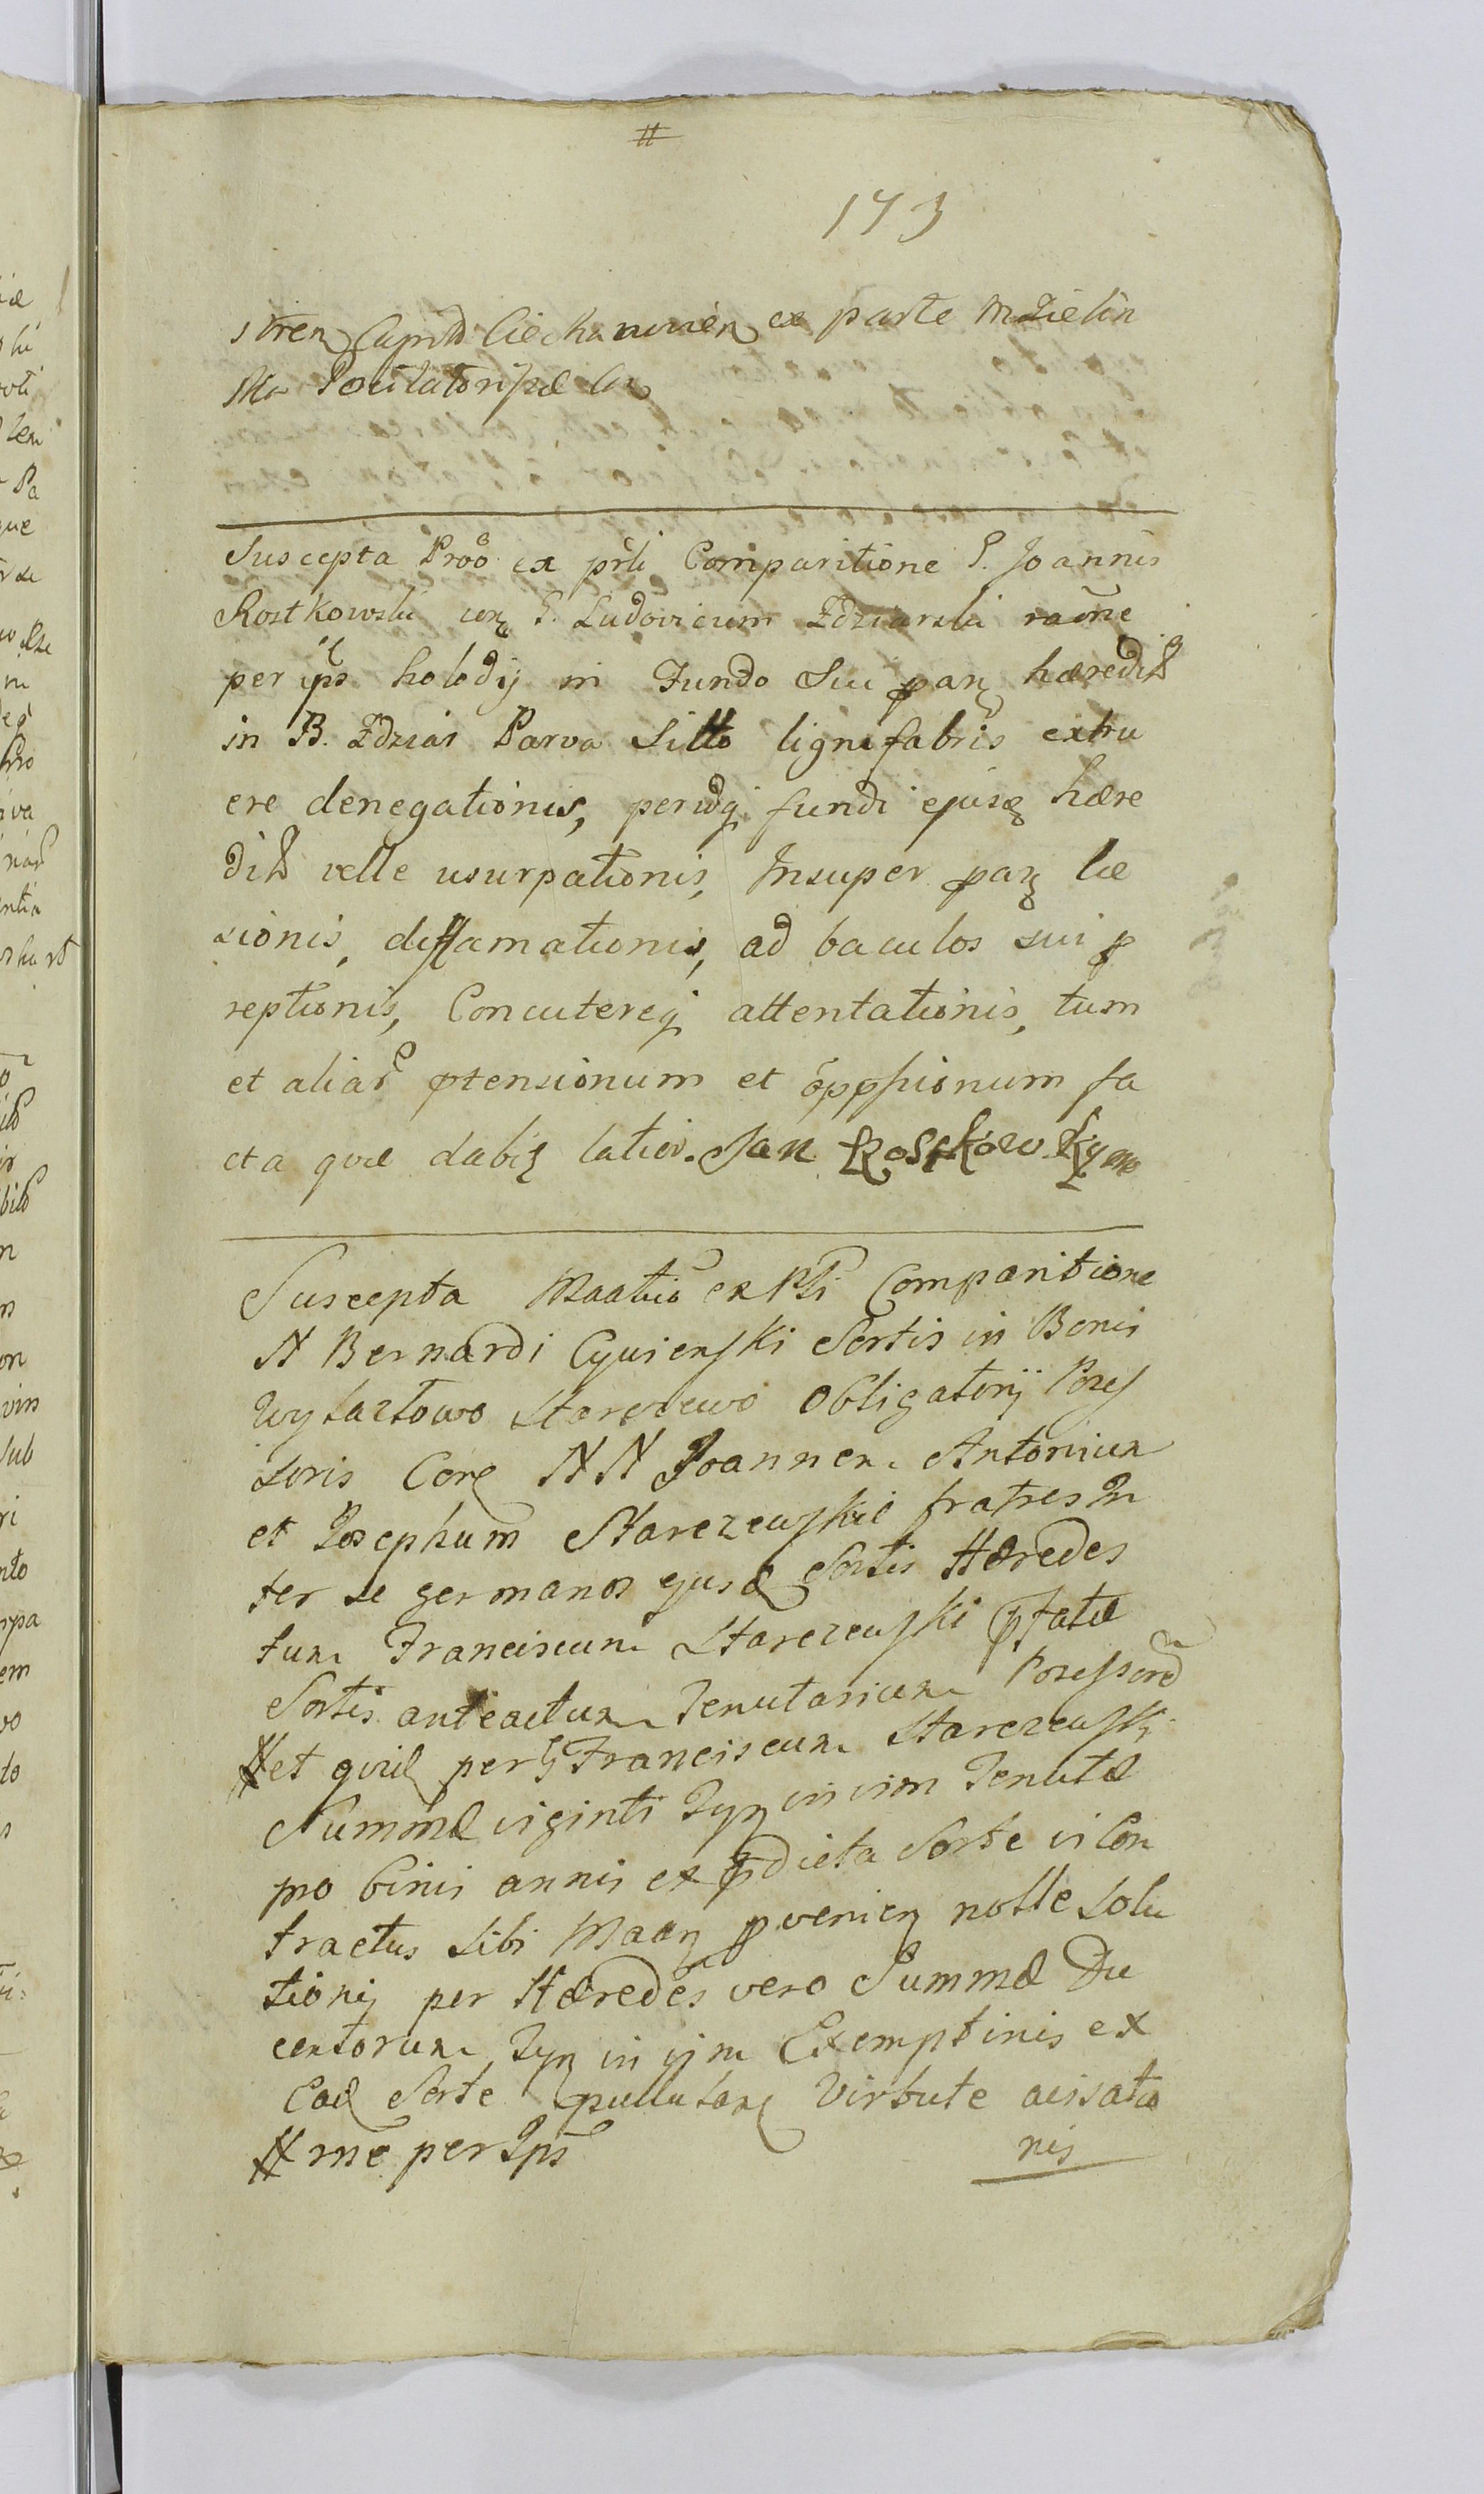 #
173
ex parte Mzielin
Suscepta Proõ ex prti Comparitione G. Joannis
Rostkowski con G. Ludovicum Zdziarski raõne
per ips holodij in Fundo Sui par hæredit
in B. Zdziar Parva Sitto lignifabris extru
ere denegationis, peridq fundi ejusq hære
dit velle usurpationis, Insuper par læ
sionis, diffamationis, ad baculos sui p
reptionis, Concutereq attentationis, tum
et aliar ptensionum et oppssionum fa
cta quæ dabit latior. Jan Rostkowsky mp
Suscepta Maatio ex Pti Comparitione
N Bernardi Cywienski Sortis in Bonis
Wylaztowo Starczewo Obligatorij Poses
soris Cora NN Joannem Antonium
et Josephum Starczewskie fratres In
ter se germanos ejusd Sortis Hæredes
tum Franciscum Starczewski pfatæ
Sortis anteactum Tenutarium Possessore
# et quid per G Franciscum Starczewski
Summæ viginti Tyn in vim Tenutæ
pro binis annis ex pdicta Sorte vi Con
tractus Sibi Maan pvenien nolle Solu
tionis per Hæredes vero Summæ Du
centorum Tyn in vim Exemptinis ex
Ead Sorte pullulan Virtute avisatio
nis
# rne per Ips